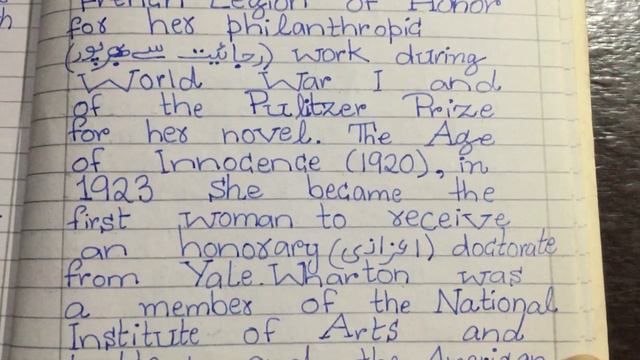 French Legion of Honor
for her philanthropic
(رجائیت سے بھرپور) work during
World War I and
of the Pulitzer Prize
for her novel. The Age
of Innocence (1920), in
1923 she became the
first woman to receive
an honorary (اعزازی) doctorate
from Yale. Wharton was
a member of the National
Institute of Arts and
the American